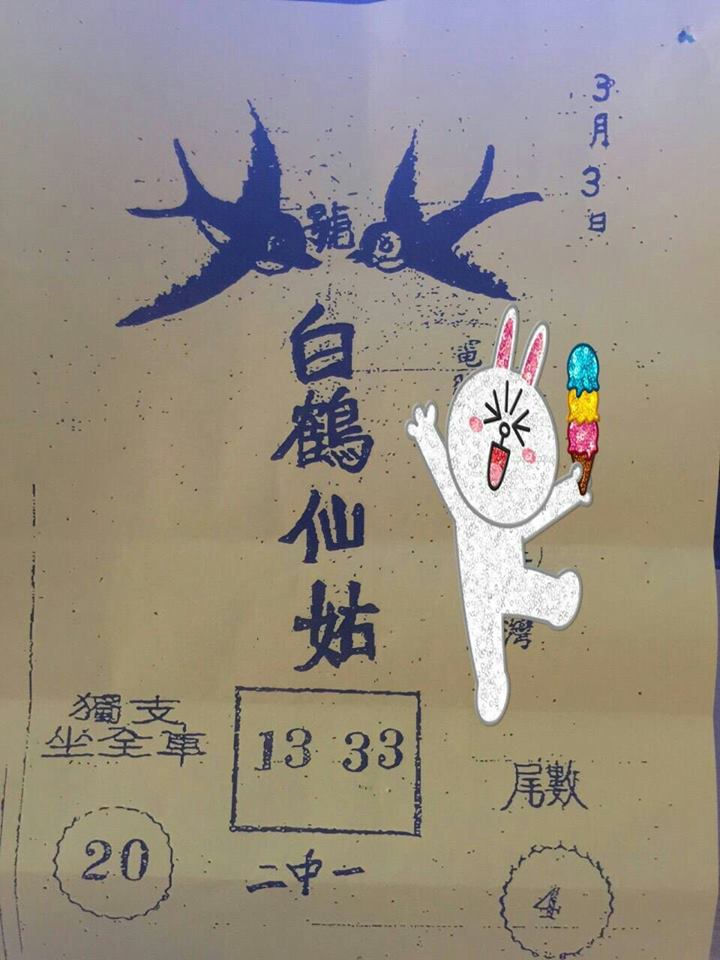 3月3日
號
白鶴仙姑
獨支
坐全車
13 33
尾數
20
二中一
4